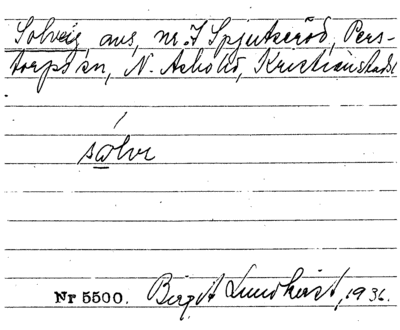 Solveig, avs, nr. 7 Spjutseröd, Pers-
torps sn, N. Åsbo hd, Kristianstads l
sólvi
Nr 5500. Birgit Lundkvist, 1936.